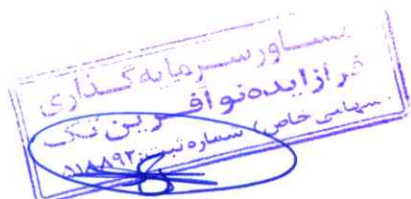 مشاور سرمایه گذاری
فراز ایده نو آفرین تک
سهامی خاص) شماره ثبت: ۵۱۸۸۹۳